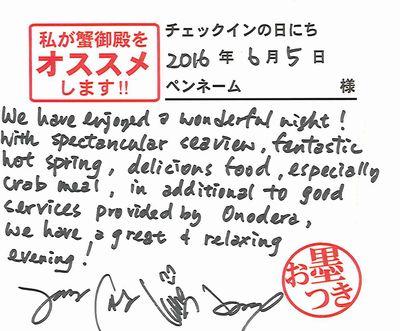 私が蟹御殿を
オススメ
します!!
チェックインの日にち
2016 年 6 月 5 日
ペンネーム 様
We have enjoyed a wonderful night!
With spectancular seaview, fentastic
hot spring, delicious food, especially
crab meal, in additional to good
services provided by Onodera,
we have a great & relaxing
evening!
お墨つき